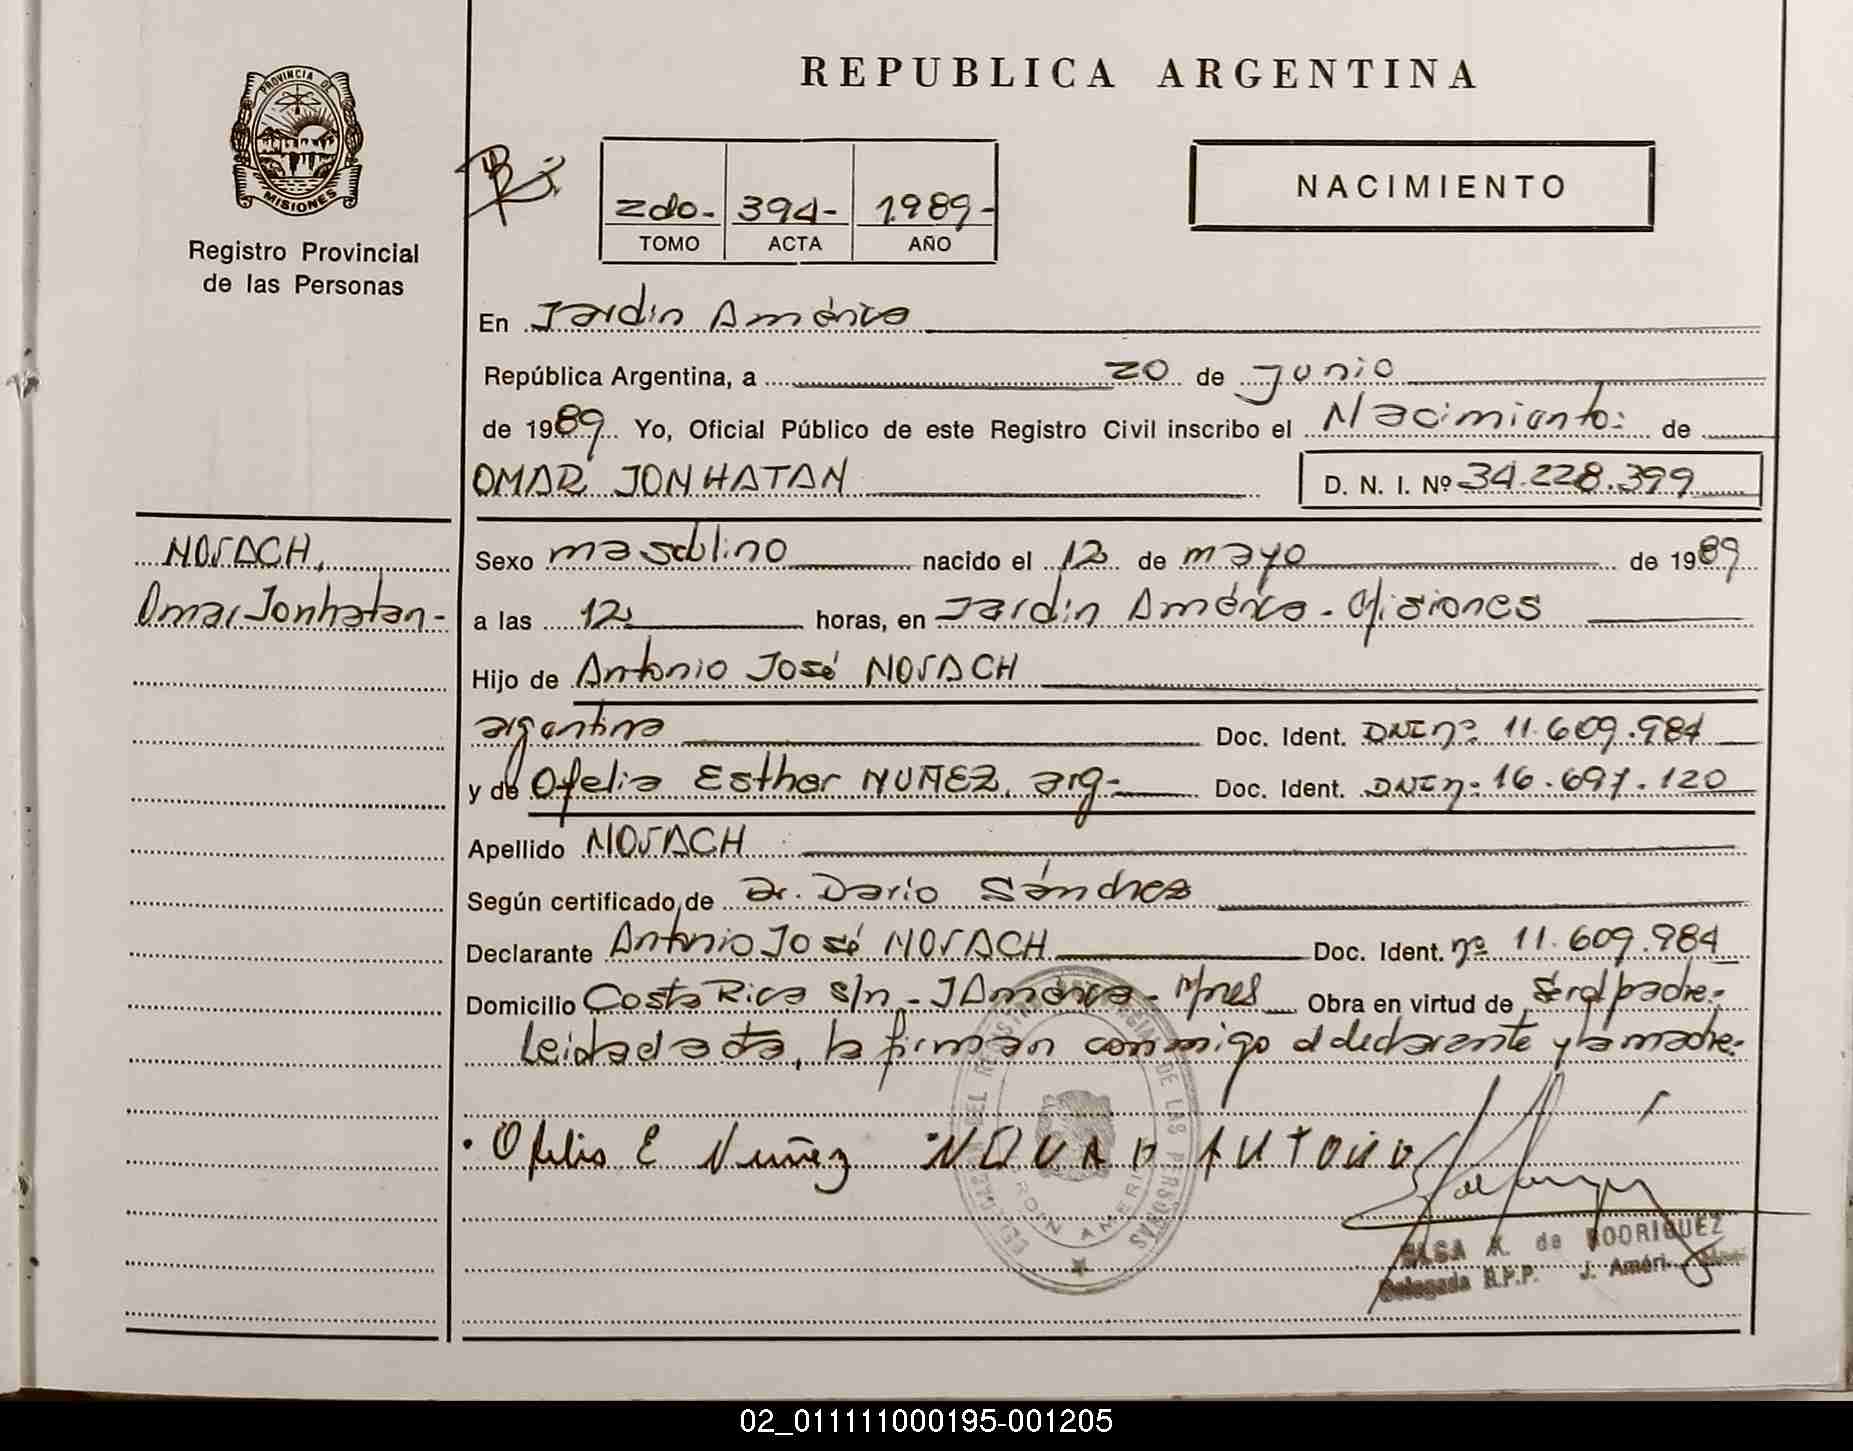 PROVINCIA DE
MISIONES
Registro Provincial
de las Personas
REPUBLICA ARGENTINA
2do.- 394- 1989-
TOMO ACTA AÑO
NACIMIENTO
En Jardín América
República Argentina, a 20 de Junio
de 1989 Yo, Oficial Público de este Registro Civil inscribo el Nacimiento: de
OMAR JONHATAN D. N. I. Nº 34.228.399
NOVACH,
Omar Jonhatan-
Sexo masculino nacido el 12 de mayo de 1989
a las 12 horas, en Jardín América - Misiones
Hijo de Antonio José NOVACH
argentino Doc. Ident. DNI nº 11.609.984
y de Ofelia Esther NUÑEZ, arg- Doc. Ident. DNI nº 16.697.120
Apellido NOVACH
Según certificado de Dr. Dario Sánchez
Declarante Antonio José NOVACH Doc. Ident. nº 11.609.984
Domicilio Costa Rica s/n - J América - Mnes Obra en virtud de ser el padre.-
Leida el acta, la firman conmigo el declarante y la madre.-
Ofelia E Nuñez NOVAH ANTONIO
ELSA K. de RODRIGUEZ
Delegada R.P.P. J. Améri.
02_011111000195-001205